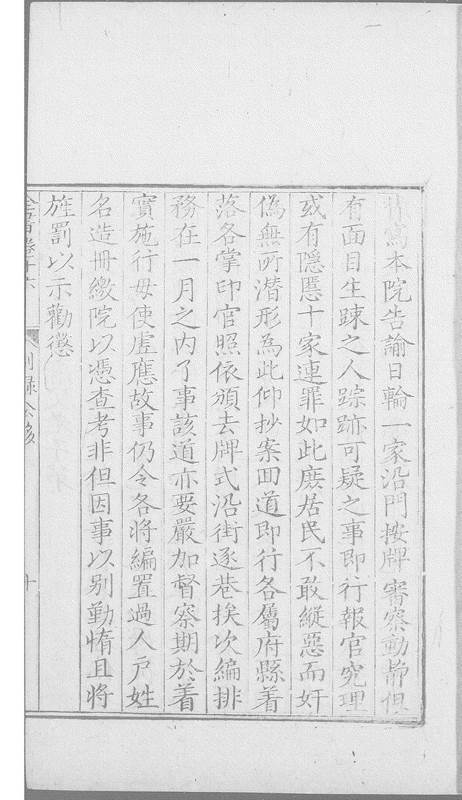 背寫本院告諭日輪一家沿門按牌審察動靜但
有面目生踈之人踪跡可疑之事即行報官究理
或有隱慝十家連罪如此庶居民不敢縱惡而奸
偽無所潛形為此仰抄案囬道即行各屬府縣着
落各掌印官照依頒去牌式沿街逐巷挨次編排
務在一月之內了事該道亦要嚴加督察期於着
實施行毋使虛應故事仍令各將編置過人戶姓
名造冊繳院以憑查考非但因事以別勤惰且將
旌罰以示勸懲
全書卷十六 別錄 公移 十